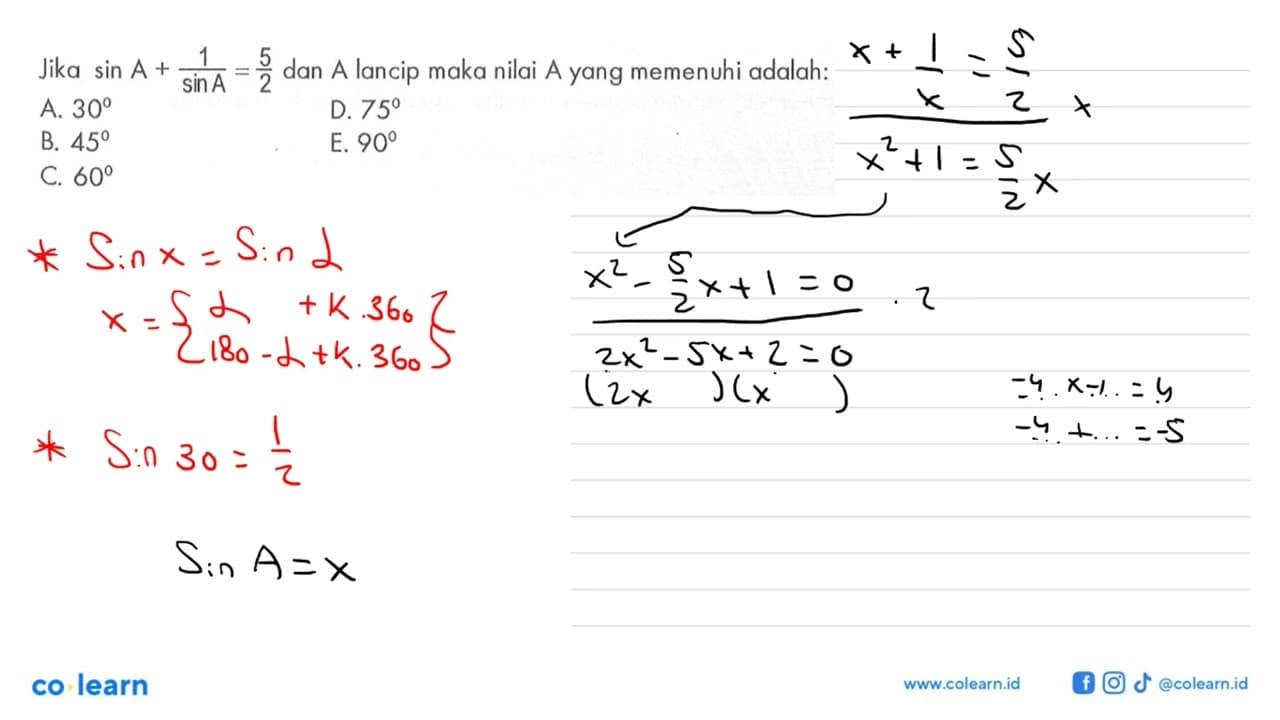 Jika sin A + 1/sin A = 5/2 dan A lancip maka nilai A yang memenuhi adalah:
A. 30⁰ D. 75⁰
B. 45⁰ E. 90⁰
C. 60⁰
x + 1/x = 5/2 x
x² + 1 = 5/2 x
x² - 5/2 x + 1 = 0 . 2
2x² - 5x + 2 = 0
(2x )(x )
-4 . x -1 .. = 4
-4 .. + ... = -5
* Sin x = Sin α
x = { α + k . 360 }
{ 180 - α + k . 360 }
* Sin 30 = 1/2
Sin A = x
co learn
www.colearn.id
@colearn.id